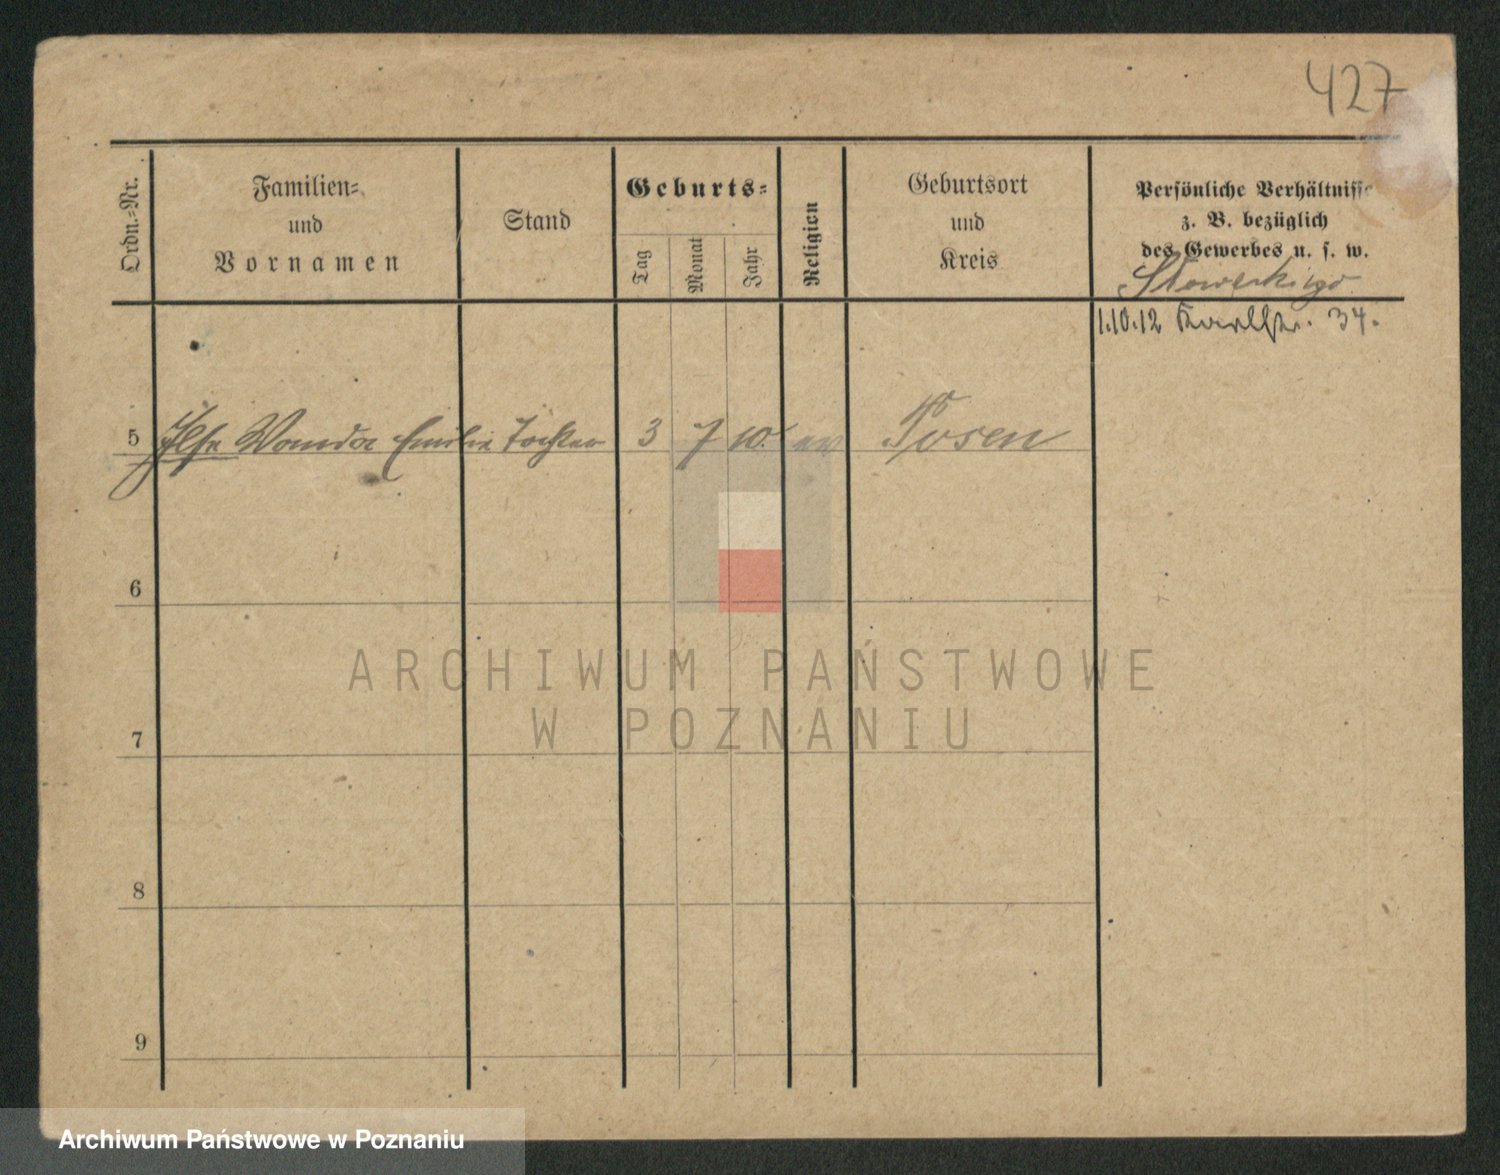 427
Ordn.-Nr.
Familien-
und
Vornamen
Stand
Geburts-
Tag
Monat
Jahr
Religion
Geburtsort
und
Kreis
Persönliche Verhältnisse
z. B. bezüglich
des Gewerbes u. s. w.
Słowackiego
1.10.12 34.
5 Ilse Wanda Emilie Tochter 3 7 10. ev Posen
6
7
8
9
ARCHIWUM PAŃSTWOWE
W POZNANIU
Archiwum Państwowe w Poznaniu